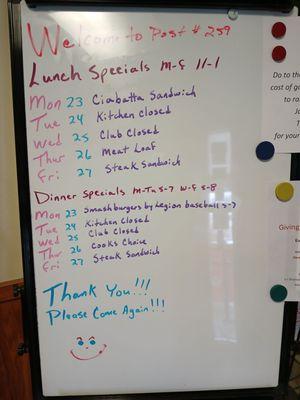 Welcome to Post # 259
Lunch Specials M-F 11-1
Mon 23 Ciabatta Sandwich
Tue 24 Kitchen Closed
Wed 25 Club Closed
Thur 26 Meat Loaf
Fri 27 Steak Sandwich
Dinner Specials M-Tu 5-7 W-F 5-8
Mon 23 Smashburgers by Legion baseball 5-7
Tue 24 Kitchen Closed
Wed 25 Club Closed
Thur 26 Cooks Choice
Fri 27 Steak Sandwich
Thank You!!!
Please Come Again!!!
Do to the
cost of go
to ra
for your
Giving